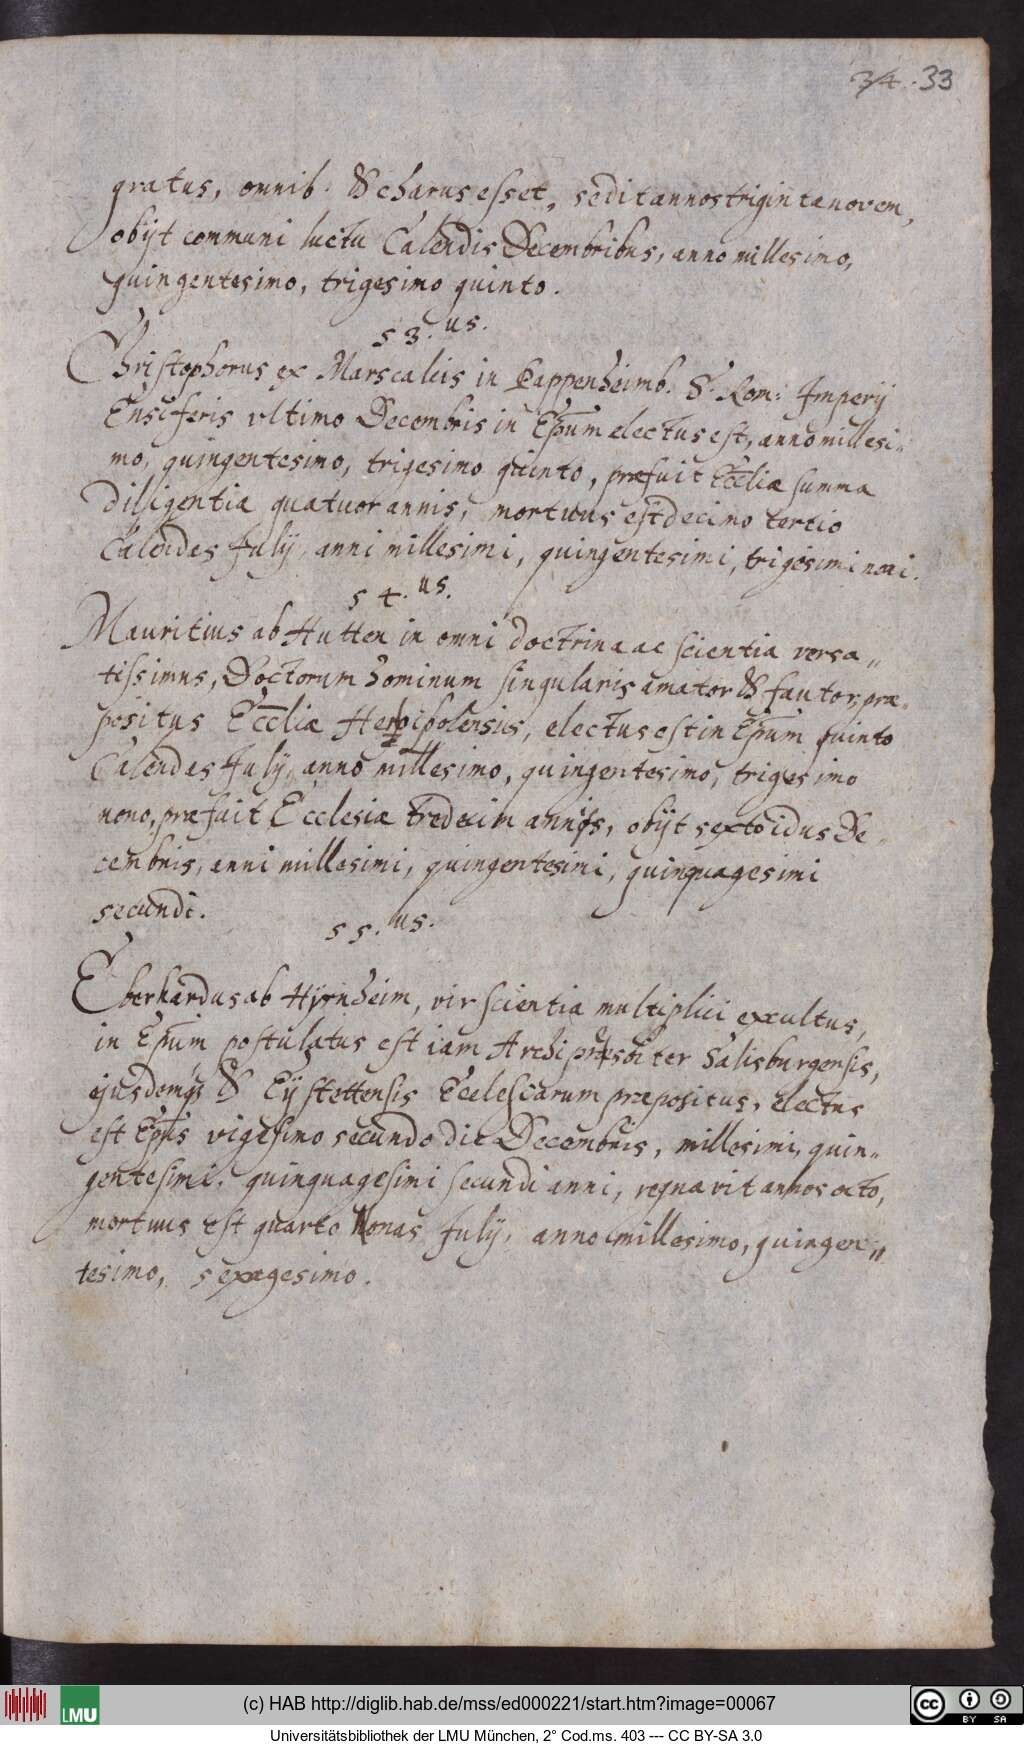 34. 33
gratus, omnib. & charus esset, sedit annos triginta novem,
obijt communi luctu Calendis Decembribus, anno millesimo,
quingentesimo, trigesimo quinto.
53.us.
Christophorus ex Marscalcis in Pappenheimb. S. Rom: Imperij
Ensiferis ultimo Decembris in Ep̄um electus est, anno millesi„
mo, quingentesimo, trigesimo quinto, præfuit Eccliæ summa
diligentia quatuor annis, mortuus est decimo tertio
Calendas Julij, anni millesimi, quingentesimi, trigesimi noni.
54.us.
Mauritius ab Hutten in omni doctrina ac scientia versa„
tissimus, Doctorum hominum singularis amator & fautor, præ„
positus Eccliæ Herbipolensis, electus est in Ep̄um quinto
Calendas Julij, anno millesimo, quingentesimo, trigesimo
nono, præfuit Ecclesiæ tredecim annos, obijt sexto idus De„
cembris, anni millesimi, quingentesimi, quinquagesimi
secundi.
55.us.
Eberhardus ab Hÿrnheim, vir scientia multiplici excultus,
in Ep̄um postulatus est iam Archipresbiter Salisburgensis,
ejusdemq₃ & Eÿstettensis Ecclesiarum præpositus, electus
est Ep̄us vigesimo secundo die Decembris, millesimi, quin„
gentesimi, quinquagesimi secundi anni, regnavit annos octo,
mortuus est quarto Nonas Julij, anno millesimo, quingen„
tesimo, sexagesimo.
(c) HAB http://diglib.hab.de/mss/ed000221/start.htm?image=00067
LMU
cc BY SA
Universitätsbibliothek der LMU München, 2° Cod.ms. 403 --- CC BY-SA 3.0